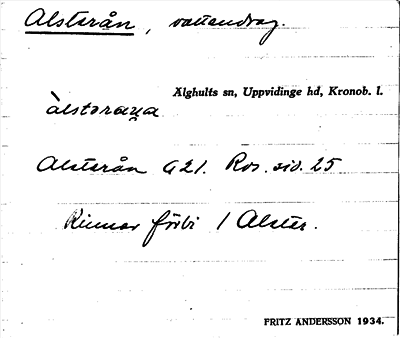 Alsterån, vattendrag.
Älghults sn, Uppvidinge hd, Kronob. l.
àlstərаṇa
Alsterån G 21. Ros. sid. 25
Rinner förbi 1 Alster.
FRITZ ANDERSSON 1934.